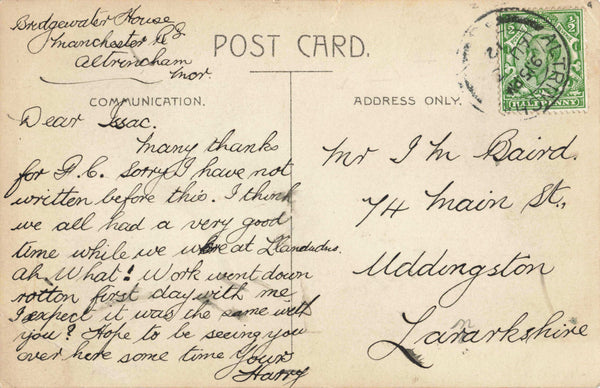 Bridgewater House
Manchester Rd
Altrincham
POST CARD.
COMMUNICATION.
Dear Isac.
Many thanks
for P.C. Sorry I have not
written before this. I think
we all had a very good
time while we were at Llandudno.
Ah What! Work went down
rotton first day with me
I expect it was the same with
you? Hope to be seeing you
over here some time Yours
Harry
ADDRESS ONLY.
Mr I M Baird.
74 Main St.,
Uddingston
Lanarkshire
HALFPENNY
ALTRINCHAM